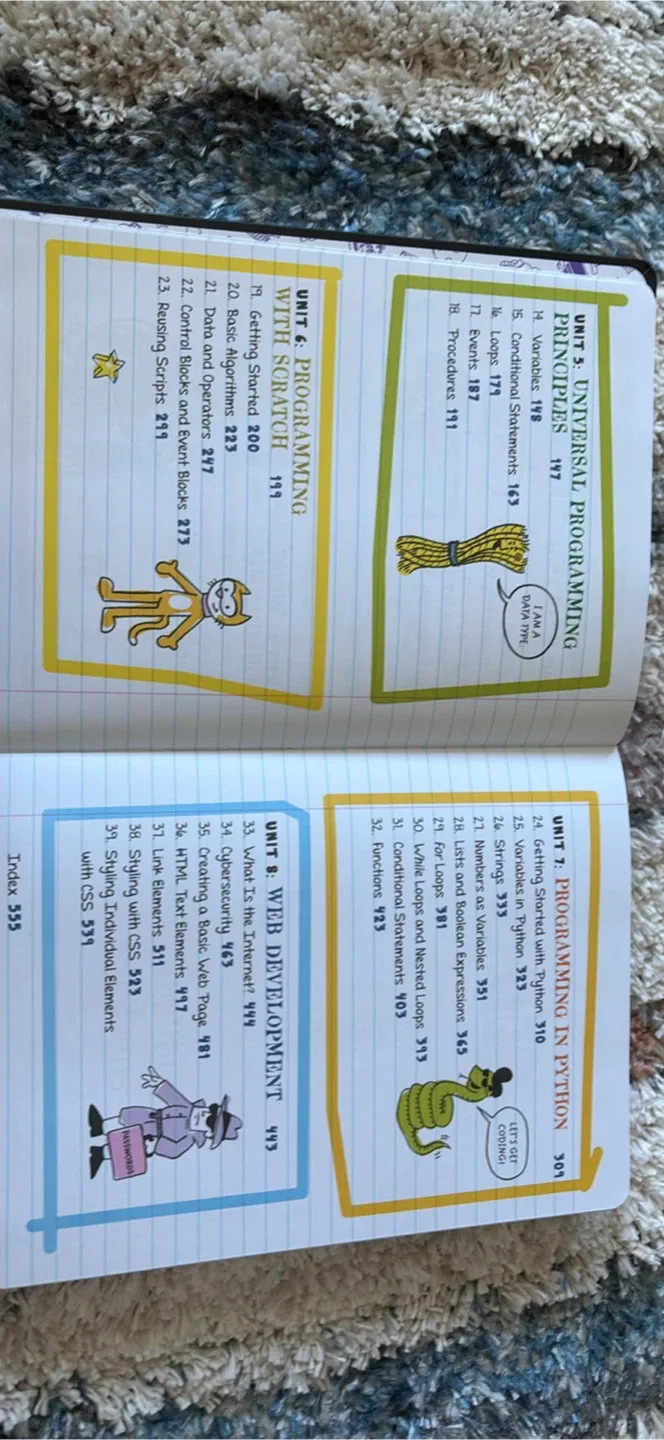 UNIT 5: UNIVERSAL PROGRAMMING
PRINCIPLES 147
14. Variables 148
15. Conditional Statements 163
16. Loops 179
17. Events 187
18. Procedures 191
I AM A
DATA TYPE
UNIT 6: PROGRAMMING
WITH SCRATCH 199
19. Getting Started 200
20. Basic Algorithms 223
21. Data and Operators 247
22. Control Blocks and Event Blocks 273
23. Reusing Scripts 299
UNIT 7: PROGRAMMING IN PYTHON 309
24. Getting Started with Python 310
25. Variables in Python 323
26. Strings 333
27. Numbers as Variables 351
28. Lists and Boolean Expressions 365
29. For Loops 381
30. While Loops and Nested Loops 393
31. Conditional Statements 403
32. Functions 423
LET'S GET
CODING!
UNIT 8: WEB DEVELOPMENT 443
33. What Is the Internet? 444
34. Cybersecurity 463
35. Creating a Basic Web Page 481
36. HTML Text Elements 497
37. Link Elements 511
38. Styling with CSS 523
39. Styling Individual Elements
with CSS 539
PASSWORDS
Index 555